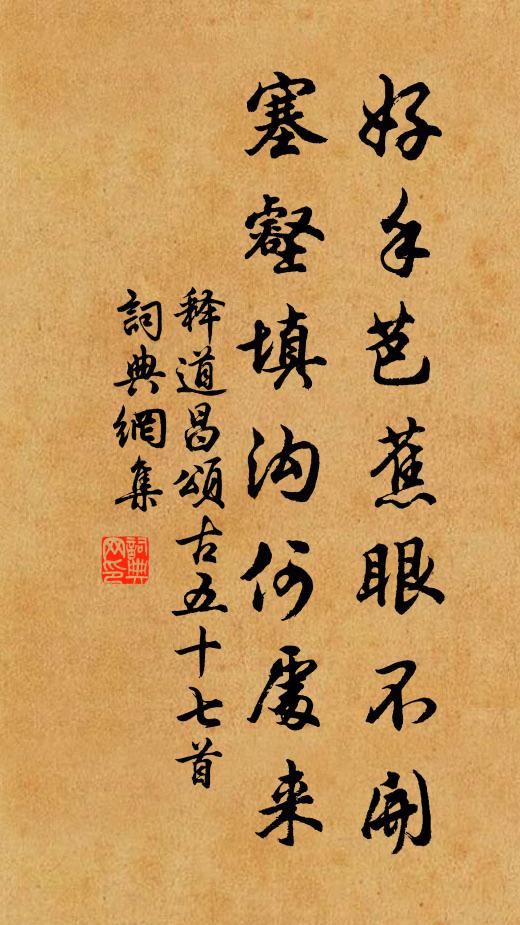 好手芭蕉眼不開
塞壑填沟何處来
释道昌頌古五十七首
詞典網集
詞典网印